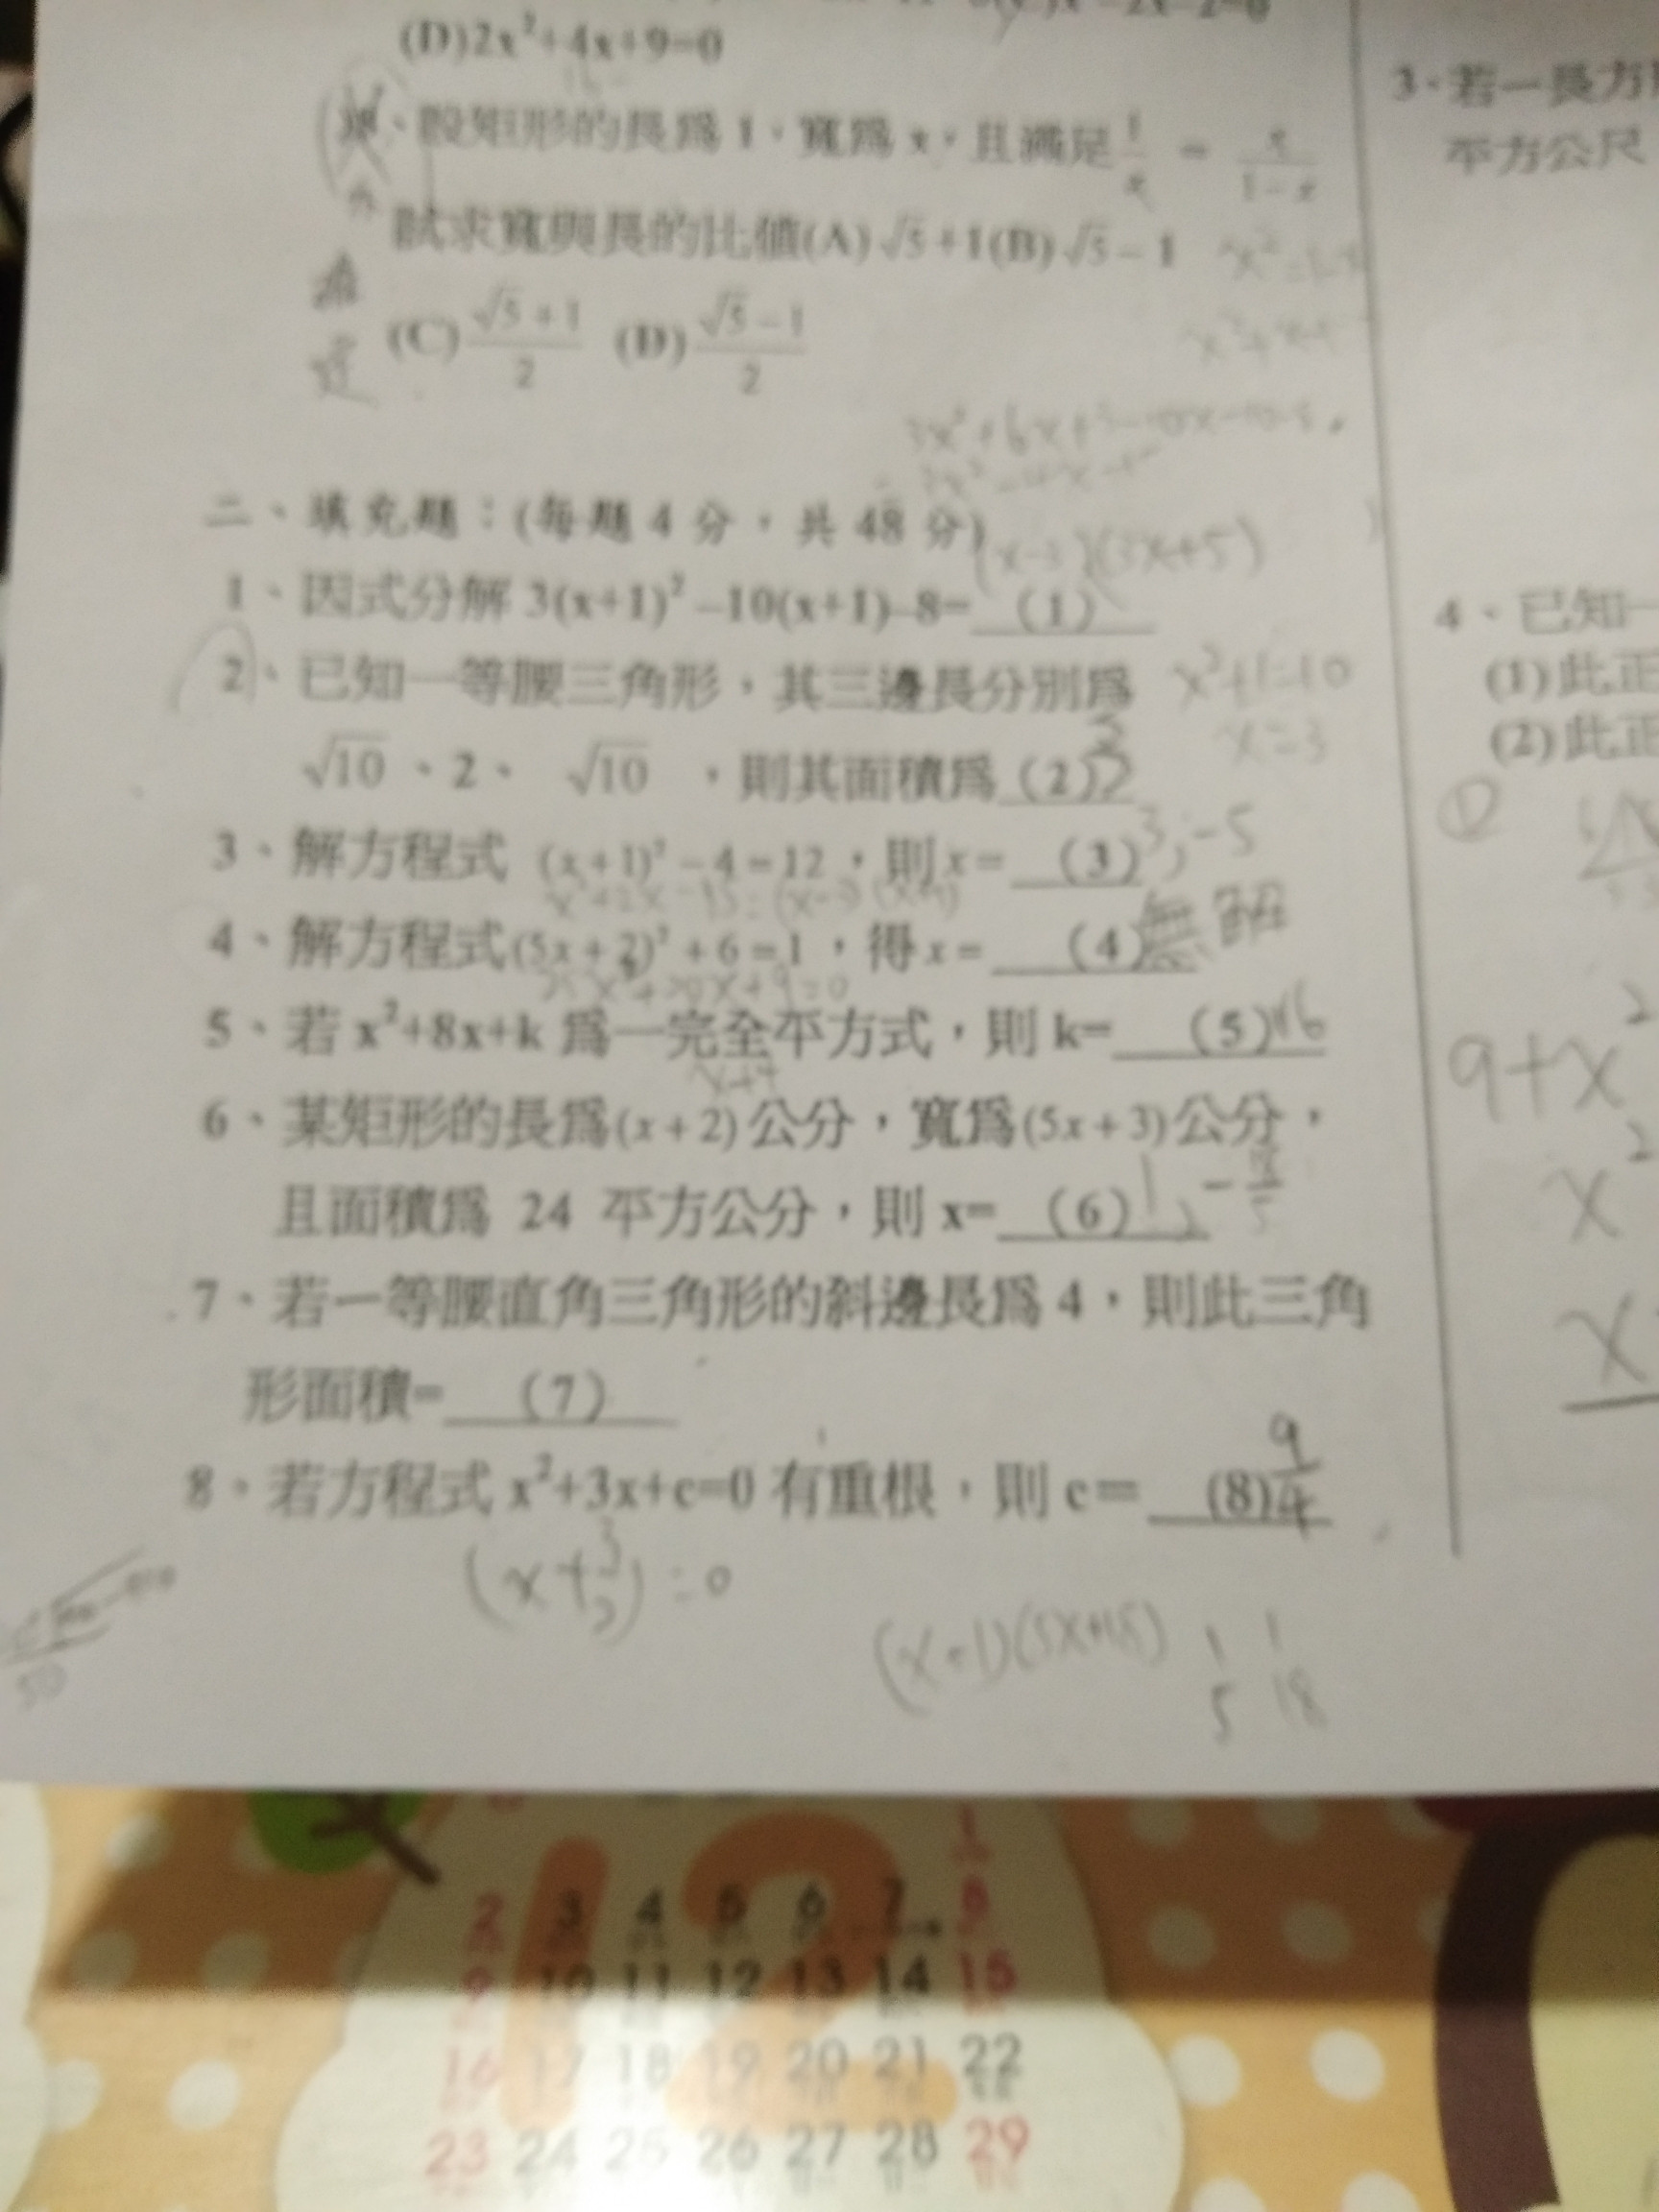 (D)2x²+4x+9=0
、設矩形的長為 1，寬為 x，且滿足 1/x = x/(1-x)
試求寬與長的比值(A)√5+1(B)√5-1
(C)(√5+1)/2 (D)(√5-1)/2
二、填充題：(每題 4 分，共 48 分)
(x-3)(3x+5)
1、因式分解 3(x+1)²-10(x+1)-8=（1）
2、已知一等腰三角形，其三邊長分別為
x²+1=10
x=3
√10、2、 √10 ，則其面積為（2） 3
3、解方程式 (x+1)²-4=12，則x=（3） 3, -5
4、解方程式(5x+2)²+6=1，得x=（4）無解
25x²+20x+9=0
5、若 x²+8x+k 為一完全平方式，則 k=（5）16
x+4
6、某矩形的長為(x+2)公分，寬為(5x+3)公分，
且面積為 24 平方公分，則 x=（6） 1, -18/5
7、若一等腰直角三角形的斜邊長為 4，則此三角
形面積=（7）
8、若方程式 x²+3x+c=0 有重根，則 c=(8) 9/4
(x+3/2)=0
(x-1)(5x+18)
1 1
5 18
3、若一長方
平方公尺
4、已知一
(1)此正
(2)此正
①
9+x²
x²
x
1
2 3 4 5 6 7 8
9 10 11 12 13 14 15
16 17 18 19 20 21 22
23 24 25 26 27 28 29
12